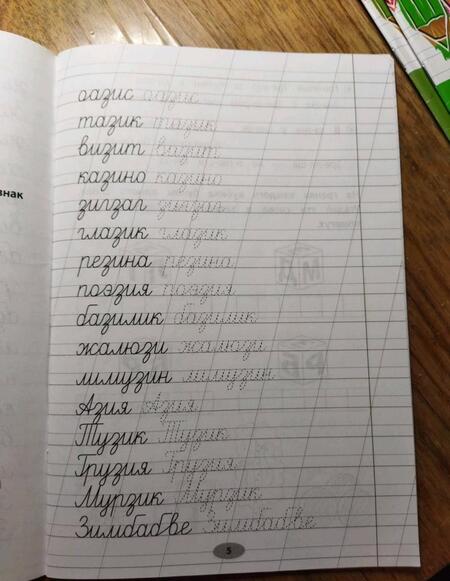 оазис оазис
тазик тазик
визит визит
казино казино
зигзаг зигзаг
глазик глазик
резина резина
поэзия поэзия
базилик базилик
жалюзи жалюзи
лимузин лимузин
Азия Азия
Тузик Тузик
Грузия Грузия
Мурзик Мурзик
Зимбабве Зимбабве
5
знак